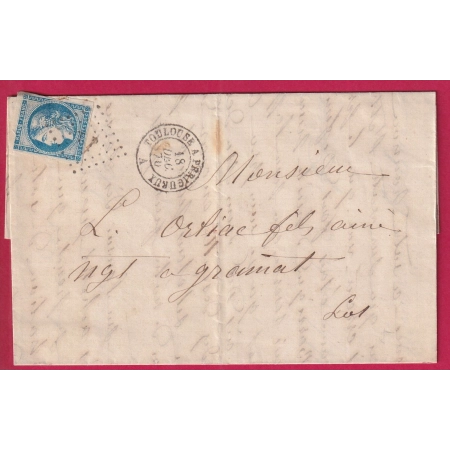 TOULOUSE A PERIGUEUX A
18
DEC
70
Monsieur
L. Orliac fils ainé
ngt a gramat
Lot